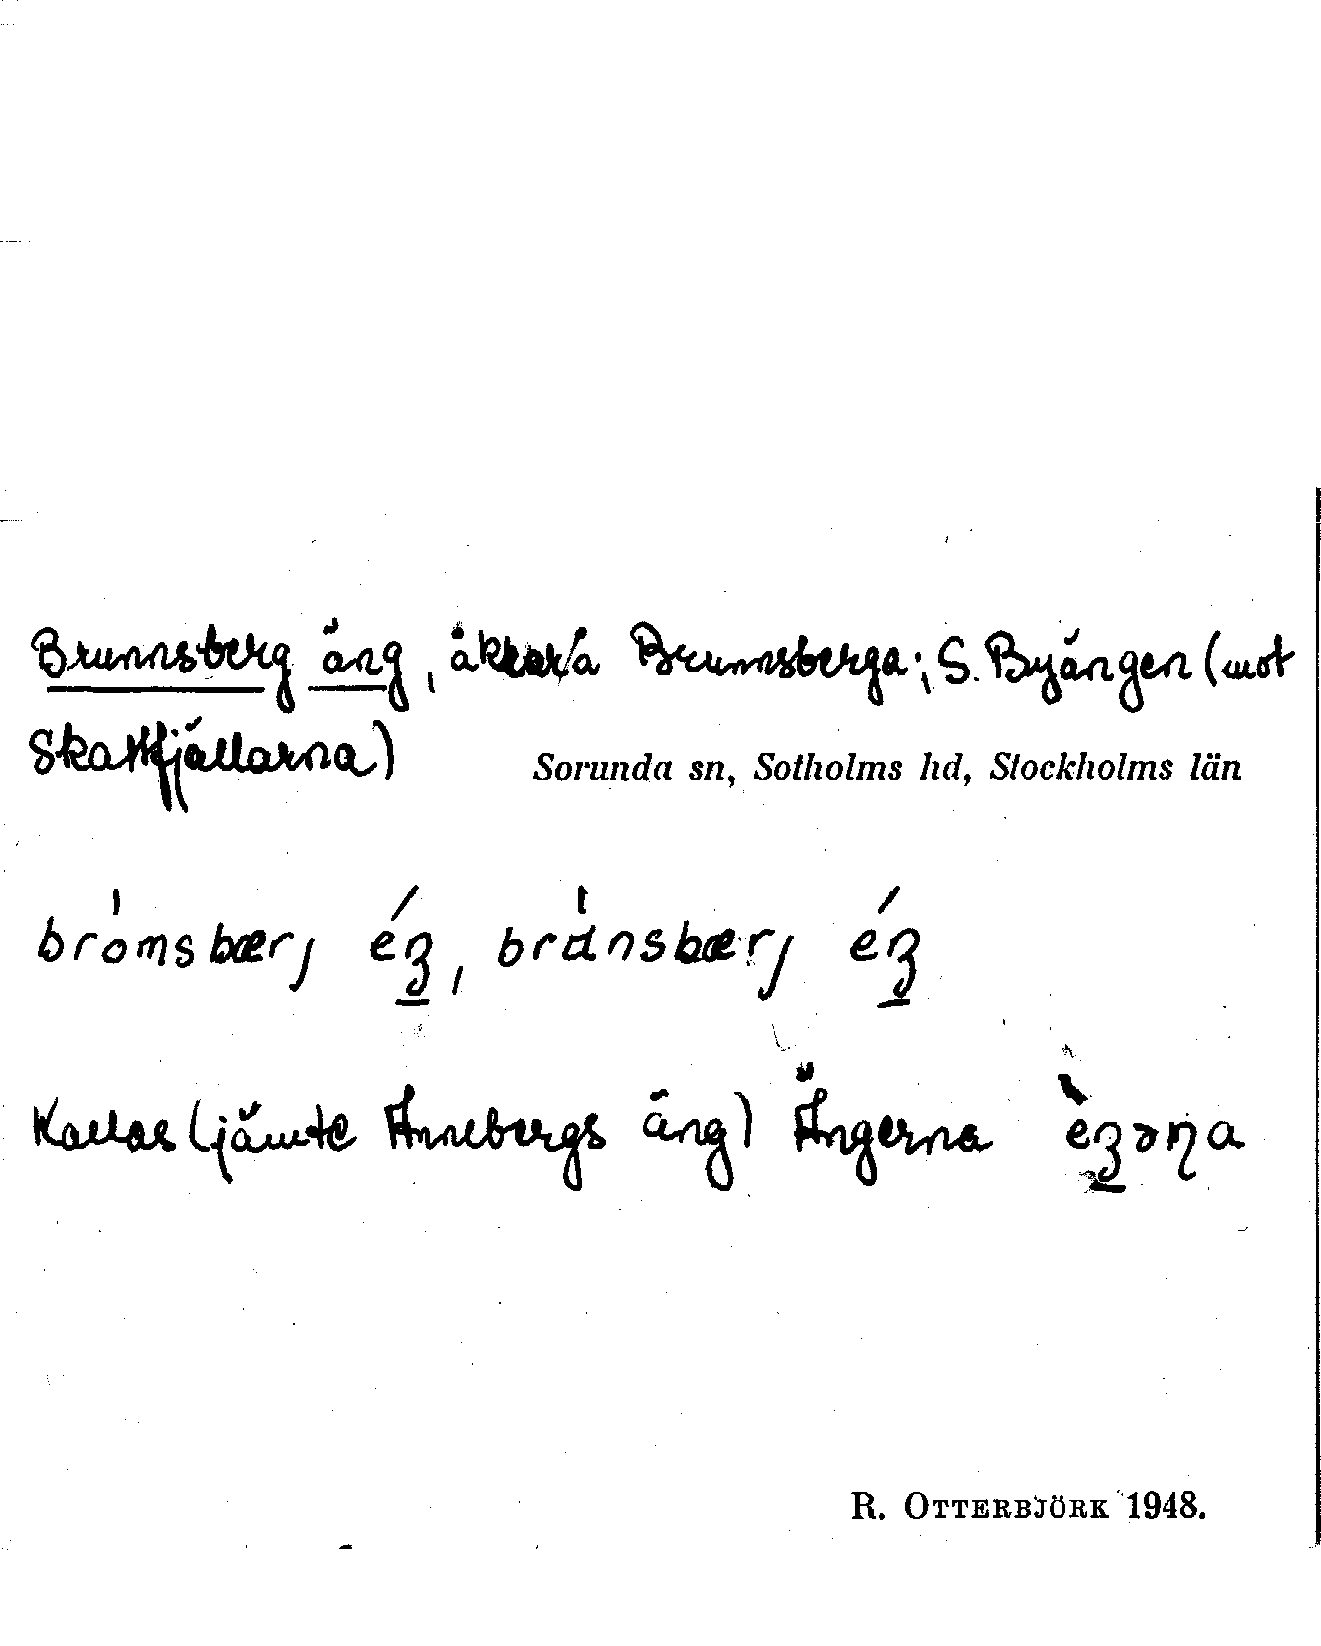 Brunnsberg äng, åkrar å Brunnsberga; S. Byängen (mot
Skattfjällarna)
Sorunda sn, Sotholms hd, Stockholms län
brómsbærj éŋ, brúnsbærj éŋ
Kallas (jämte Annebergs äng) Ängerna èŋəɳa
R. OTTERBJÖRK 1948.